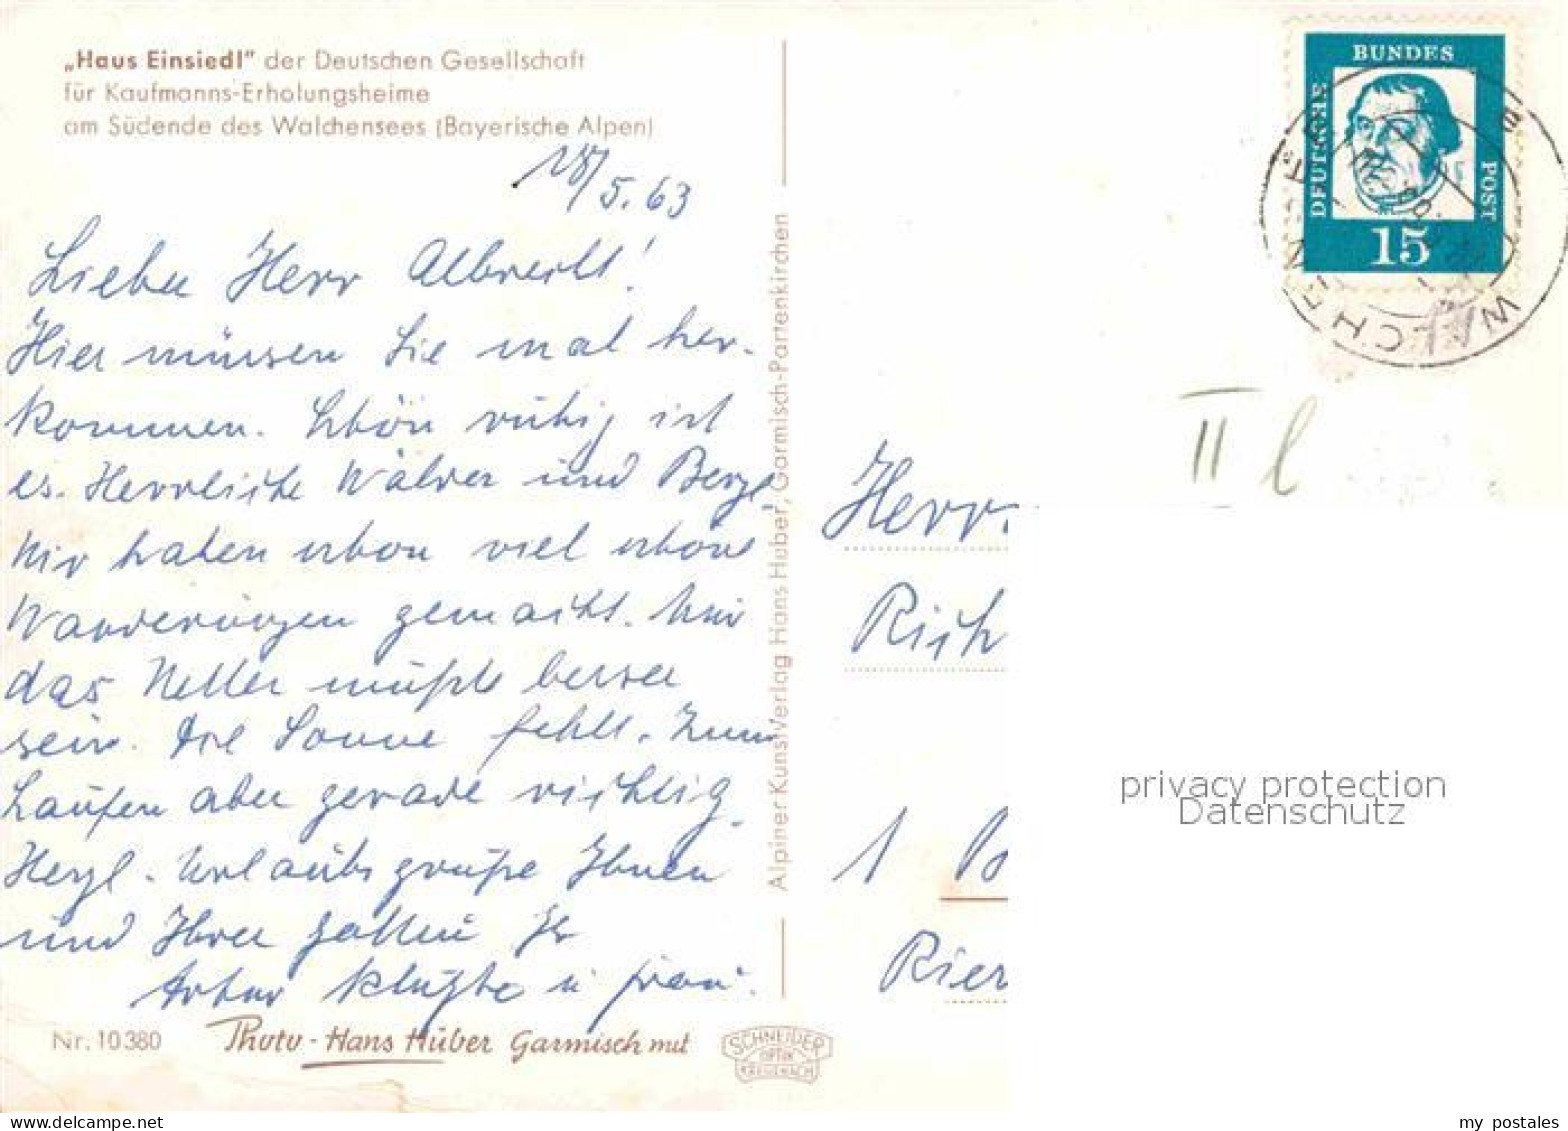 „Haus Einsiedl" der Deutschen Gesellschaft
für Kaufmanns-Erholungsheime
am Südende des Walchensees (Bayerische Alpen)
18/5.63
Lieber Herr Albrecht!
Hier müssen Sie mal her-
kommen. Schön ruhig ist
es. Herrliche Wälder und Berge
Wir haben schon viel schöne
Wanderungen gemacht. Nur
das Wetter müßte besser
sein. Die Sonne fehlt. Zum
Laufen aber gerade richtig.
Herzl. Urlaubsgrüße Ihnen
und Ihrer Gattin Ihr
Artur u Frau.
Nr. 10380
Photo-Hans Huber Garmisch mit
SCHNEIDER
OPTIK
KREUZNACH
Alpiner Kunstverlag Hans Huber, Garmisch-Partenkirchen
DEUTSCHE
BUNDES
POST
15
WALCHENSEE
II l
Herr
Rich
1 B
Rier
privacy protection
Datenschutz
my postales